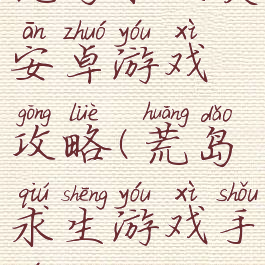 ān zhuó yóu xì
安卓游戏
gōng lüè huāng dǎo
攻略(荒岛
qiú shēng yóu xì shǒu
求生游戏手